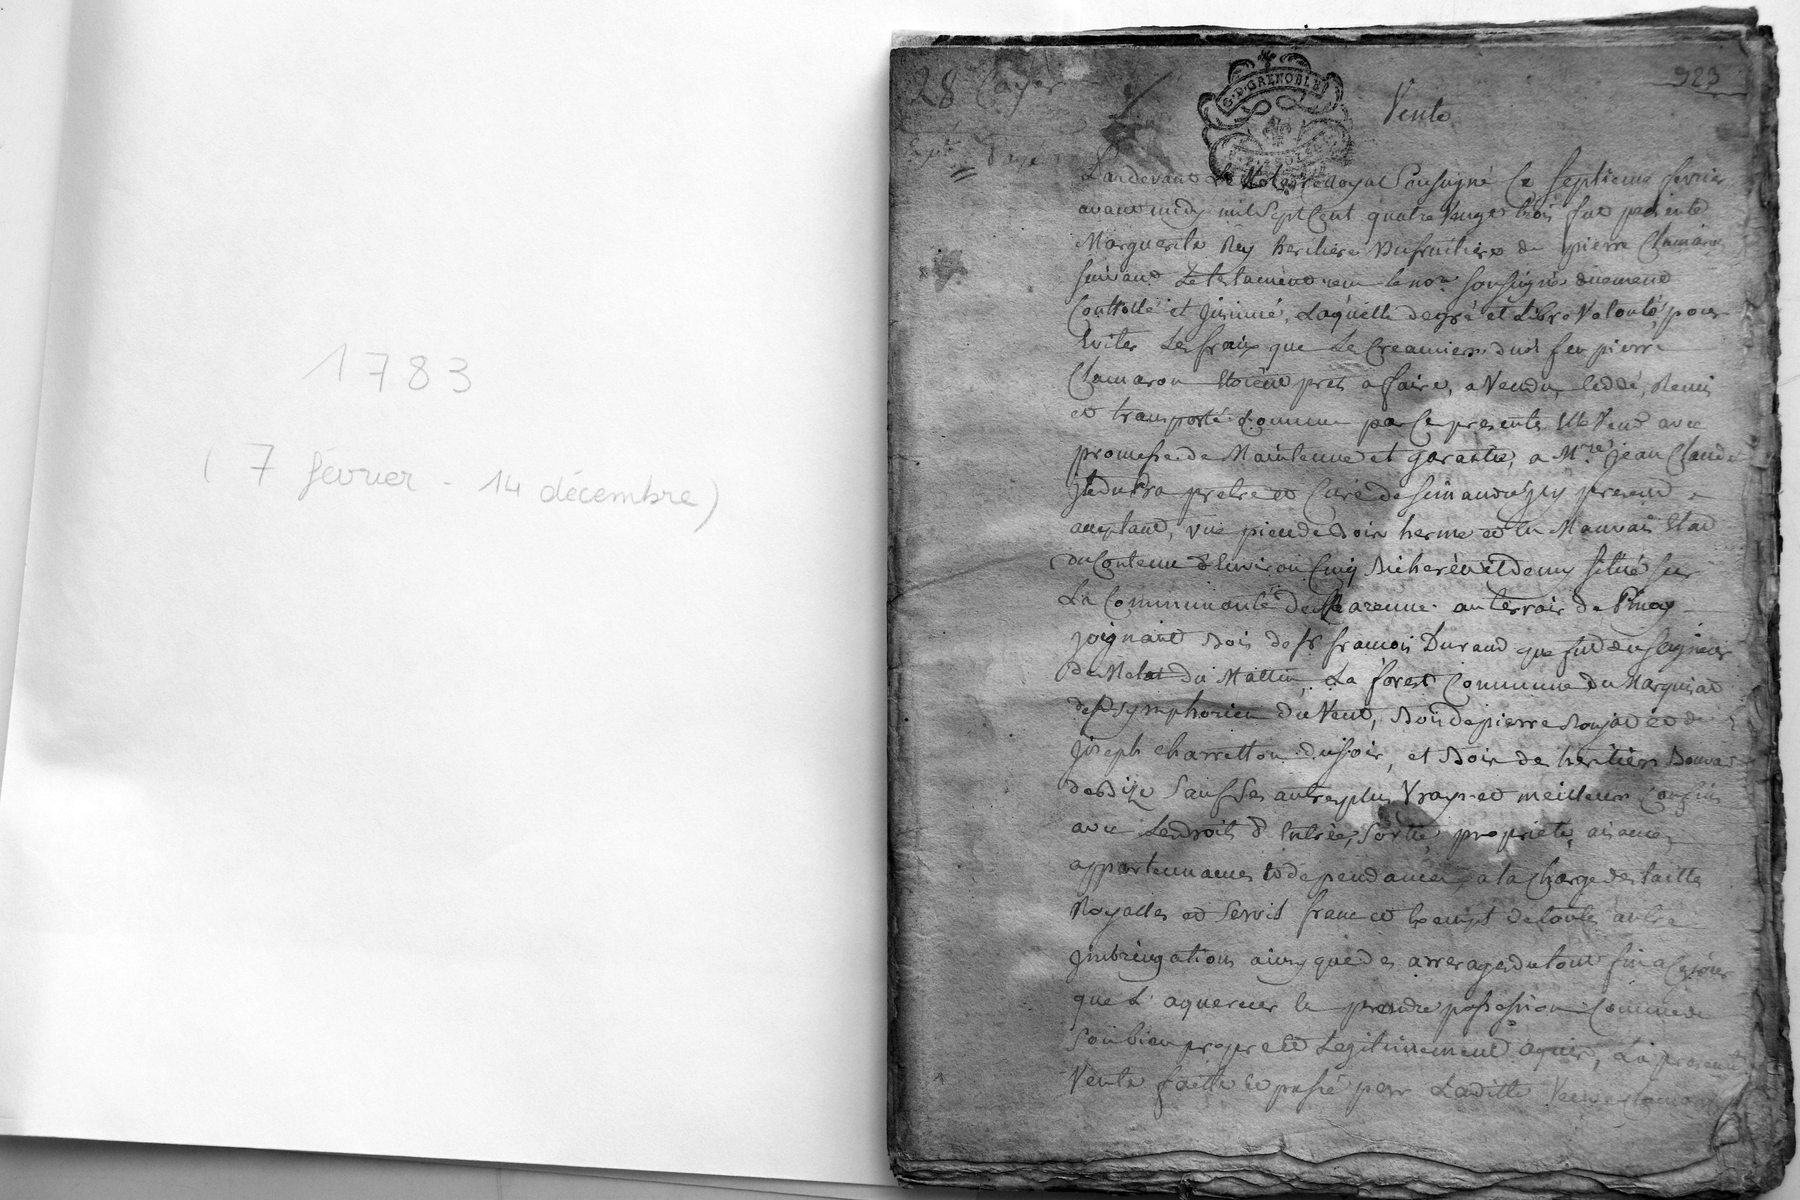 1783
( 7 février - 14 décembre)
28 Cayer
923
G.D. GRENOBLE
Vente
Pardevant Le Notaire Royal Soussigné Ce Septieme fevrier
avant midy mil Sept Cent quatre vingt trois fut presente
Marguerite Rey heritiere Usufruitiere de pierre Clamaron
suivant Le testament reçu le no.re soussigné duement
Controllé et Jnsinué, Laquelle de gré et Libre Volonté, pour
Eviter Les fraix que Le Creanciers dud. feu pierre
Clamaron Etoient prets a faire, a Vendu, Ceddé, Remis
et transporté comme par Ces presentes Elle Vend avec
promesse de Maintenue et garantie, a M.re jean Claude
pretre et Curé de present
acceptant, une piece de Bois herme et en Mauvais Etat
du Contenu d'Environ Cinq Bicherées et demy situé sur
La Communauté de Marenne au terroir de Pinay
joignant Bois de sr francois Durand que fut du seigneur
De du Mattin, La forest Commune du Marquisat
de st symphorien du Vent, Bois de pierre et de
joseph charretton du soir, et Bois des heritiers
de Bize Sauf Ses autres plus Vrays et meilleurs Confins
avec Les droits d'Entrée, Sortie, proprieté, aisances,
appartenances et dependances, a la Charge des tailles
Royalles et Servis franc et Exempt de toute autre
jmbringations ainsy que des arrerages du tout
que L'aquereur en prendre possession Comme de
Son bien propre et Legitimement aquis, La presente
Vente faitte et passé par Laditte Veuve Clamaron